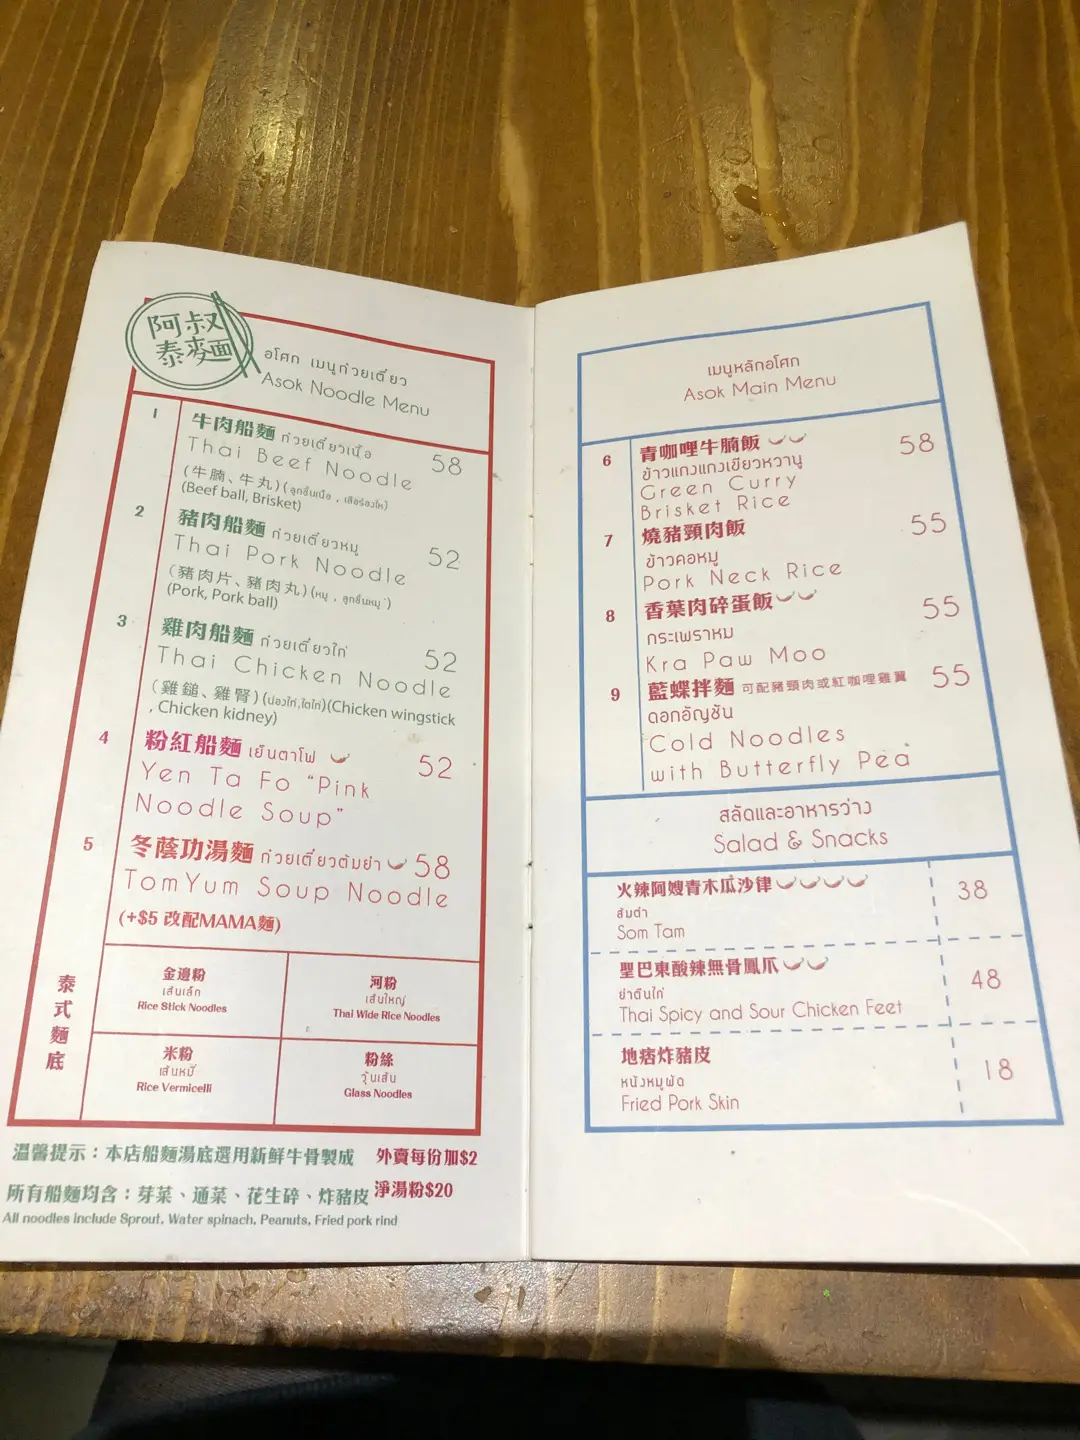 阿叔
泰麥面
อโศก เมนูก๋วยเตี๋ยว
Asok Noodle Menu
1 牛肉船麵 ก๋วยเตี๋ยวเนื้อ
Thai Beef Noodle 58
(牛腩、牛丸) (ลูกชิ้นเนื้อ , เสือร้องไห้)
(Beef ball, Brisket)
2 豬肉船麵 ก๋วยเตี๋ยวหมู
Thai Pork Noodle 52
(豬肉片、豬肉丸) (หมู , ลูกชิ้นหมู)
(Pork, Pork ball)
3 雞肉船麵 ก๋วยเตี๋ยวไก่
Thai Chicken Noodle 52
(雞鎚、雞腎) (น่องไก่,ไตไก่)(Chicken wingstick
, Chicken kidney)
4 粉紅船麵 เย็นตาโฟ 52
Yen Ta Fo “Pink
Noodle Soup”
5 冬蔭功湯麵 ก๋วยเตี๋ยวต้มยำ 58
TomYum Soup Noodle
(+$5 改配MAMA麵)
泰式麵底
金邊粉
เส้นเล็ก
Rice Stick Noodles
河粉
เส้นใหญ่
Thai Wide Rice Noodles
米粉
เส้นหมี่
Rice Vermicelli
粉絲
วุ้นเส้น
Glass Noodles
溫馨提示：本店船麵湯底選用新鮮牛骨製成 外賣每份加$2
所有船麵均含：芽菜、通菜、花生碎、炸豬皮 淨湯粉$20
All noodles include Sprout, Water spinach, Peanuts, Fried pork rind
เมนูหลักอโศก
Asok Main Menu
6 青咖哩牛腩飯 58
ข้าวแกงแกงเขียวหวานู
Green Curry
Brisket Rice
7 燒豬頸肉飯 55
ข้าวคอหมู
Pork Neck Rice
8 香葉肉碎蛋飯 55
กระเพราหม
Kra Paw Moo
9 藍蝶拌麵 可配豬頸肉或紅咖哩雞翼 55
ดอกอัญชัน
Cold Noodles
with Butterfly Pea
สลัดและอาหารว่าง
Salad & Snacks
火辣阿嫂青木瓜沙律 38
ส้มตำ
Som Tam
聖巴東酸辣無骨鳳爪 48
ยำตีนไก่
Thai Spicy and Sour Chicken Feet
地痞炸豬皮 18
หนังหมูผัด
Fried Pork Skin